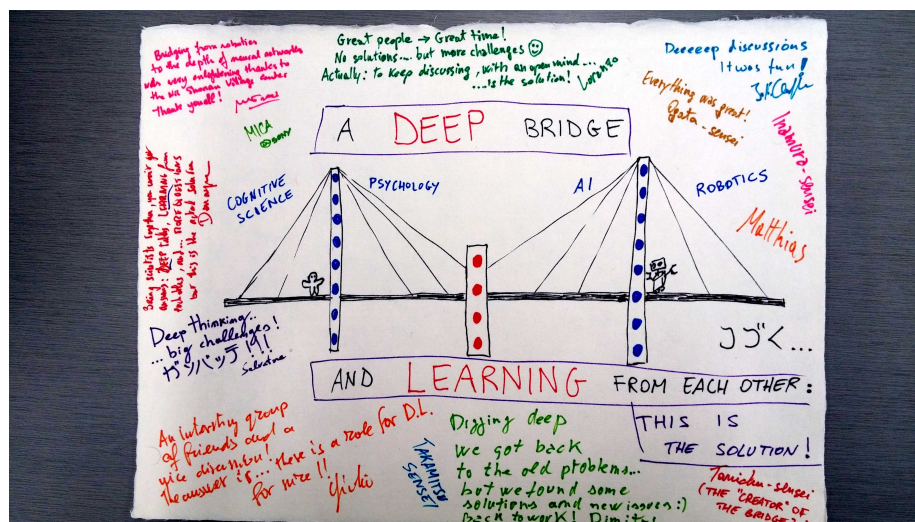 Bridging from robotics
to the depth of neural networks
was very enlightening thanks to
the NII Shonan Village Center
Thank you all!
MICA
Great people → Great time!
No solutions... but more challenges
Actually: to keep discussing, with an open mind...
...is the solution! Lorenzo
Deeeeep discussions
It was fun!
Everything was great!
Ogata-sensei
Inamura-sensei
Matthias
A DEEP BRIDGE
COGNITIVE
SCIENCE
PSYCHOLOGY
AI
ROBOTICS
Being scientists
DEEP talks, LEARNING from
but this is the
Deep thinking...
...big challenges!
ガンバッテ!!!
Salvatore
つづく...
AND LEARNING FROM EACH OTHER:
THIS IS
THE SOLUTION!
An interesting group
of friends and a
nice discussion!
The answer is... there is a role for D.L.
for mice!!
TAKAMITSU
SENSEI
Digging deep
we got back
to the old problems...
but we found some
solutions and new issues :)
Back to work! Dimitri
Tanichu-sensei
(THE "CREATOR" OF
THE BRIDGE)